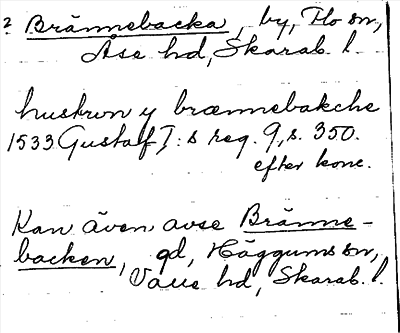 ? Brännebacka, by, Flo sn,
Åse hd, Skarab. l.
hustrwn y brænnebakche
1533 Gustaf I:s reg. 9, s. 350.
efter konc.
Kan även avse Bränne-
backen, gd, Häggums sn,
Valle hd, Skarab. l.